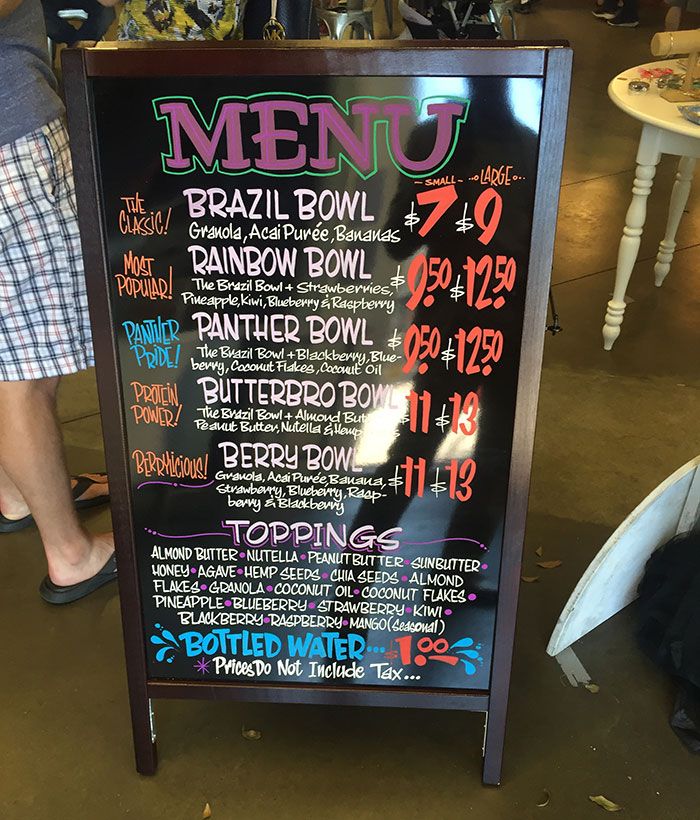 MENU
SMALL LARGE
THE CLASSIC! BRAZIL BOWL $7 $9
Granola, Acai Purée, Bananas
MOST POPULAR! RAINBOW BOWL $9.50 $12.50
The Brazil Bowl + Strawberries,
Pineapple, Kiwi, Blueberry & Raspberry
PANTHER PRIDE! PANTHER BOWL $9.50 $12.50
The Brazil Bowl + Blackberry, Blue-
berry, Coconut Flakes, Coconut Oil
PROTEIN POWER! BUTTERBRO BOWL $11 $13
The Brazil Bowl + Almond Butter
Peanut Butter, Nutella & Hemp
BERRYLICIOUS! BERRY BOWL $11 $13
Granola, Acai Purée, Banana,
Strawberry, Blueberry, Rasp-
berry & Blackberry
TOPPINGS
ALMOND BUTTER • NUTELLA • PEANUT BUTTER • SUNBUTTER •
HONEY • AGAVE • HEMP SEEDS • CHIA SEEDS • ALMOND
FLAKES • GRANOLA • COCONUT OIL • COCONUT FLAKES •
PINEAPPLE • BLUEBERRY • STRAWBERRY • KIWI •
BLACKBERRY • RASPBERRY • MANGO (Seasonal)
BOTTLED WATER... $1.00
* Prices Do Not Include Tax...